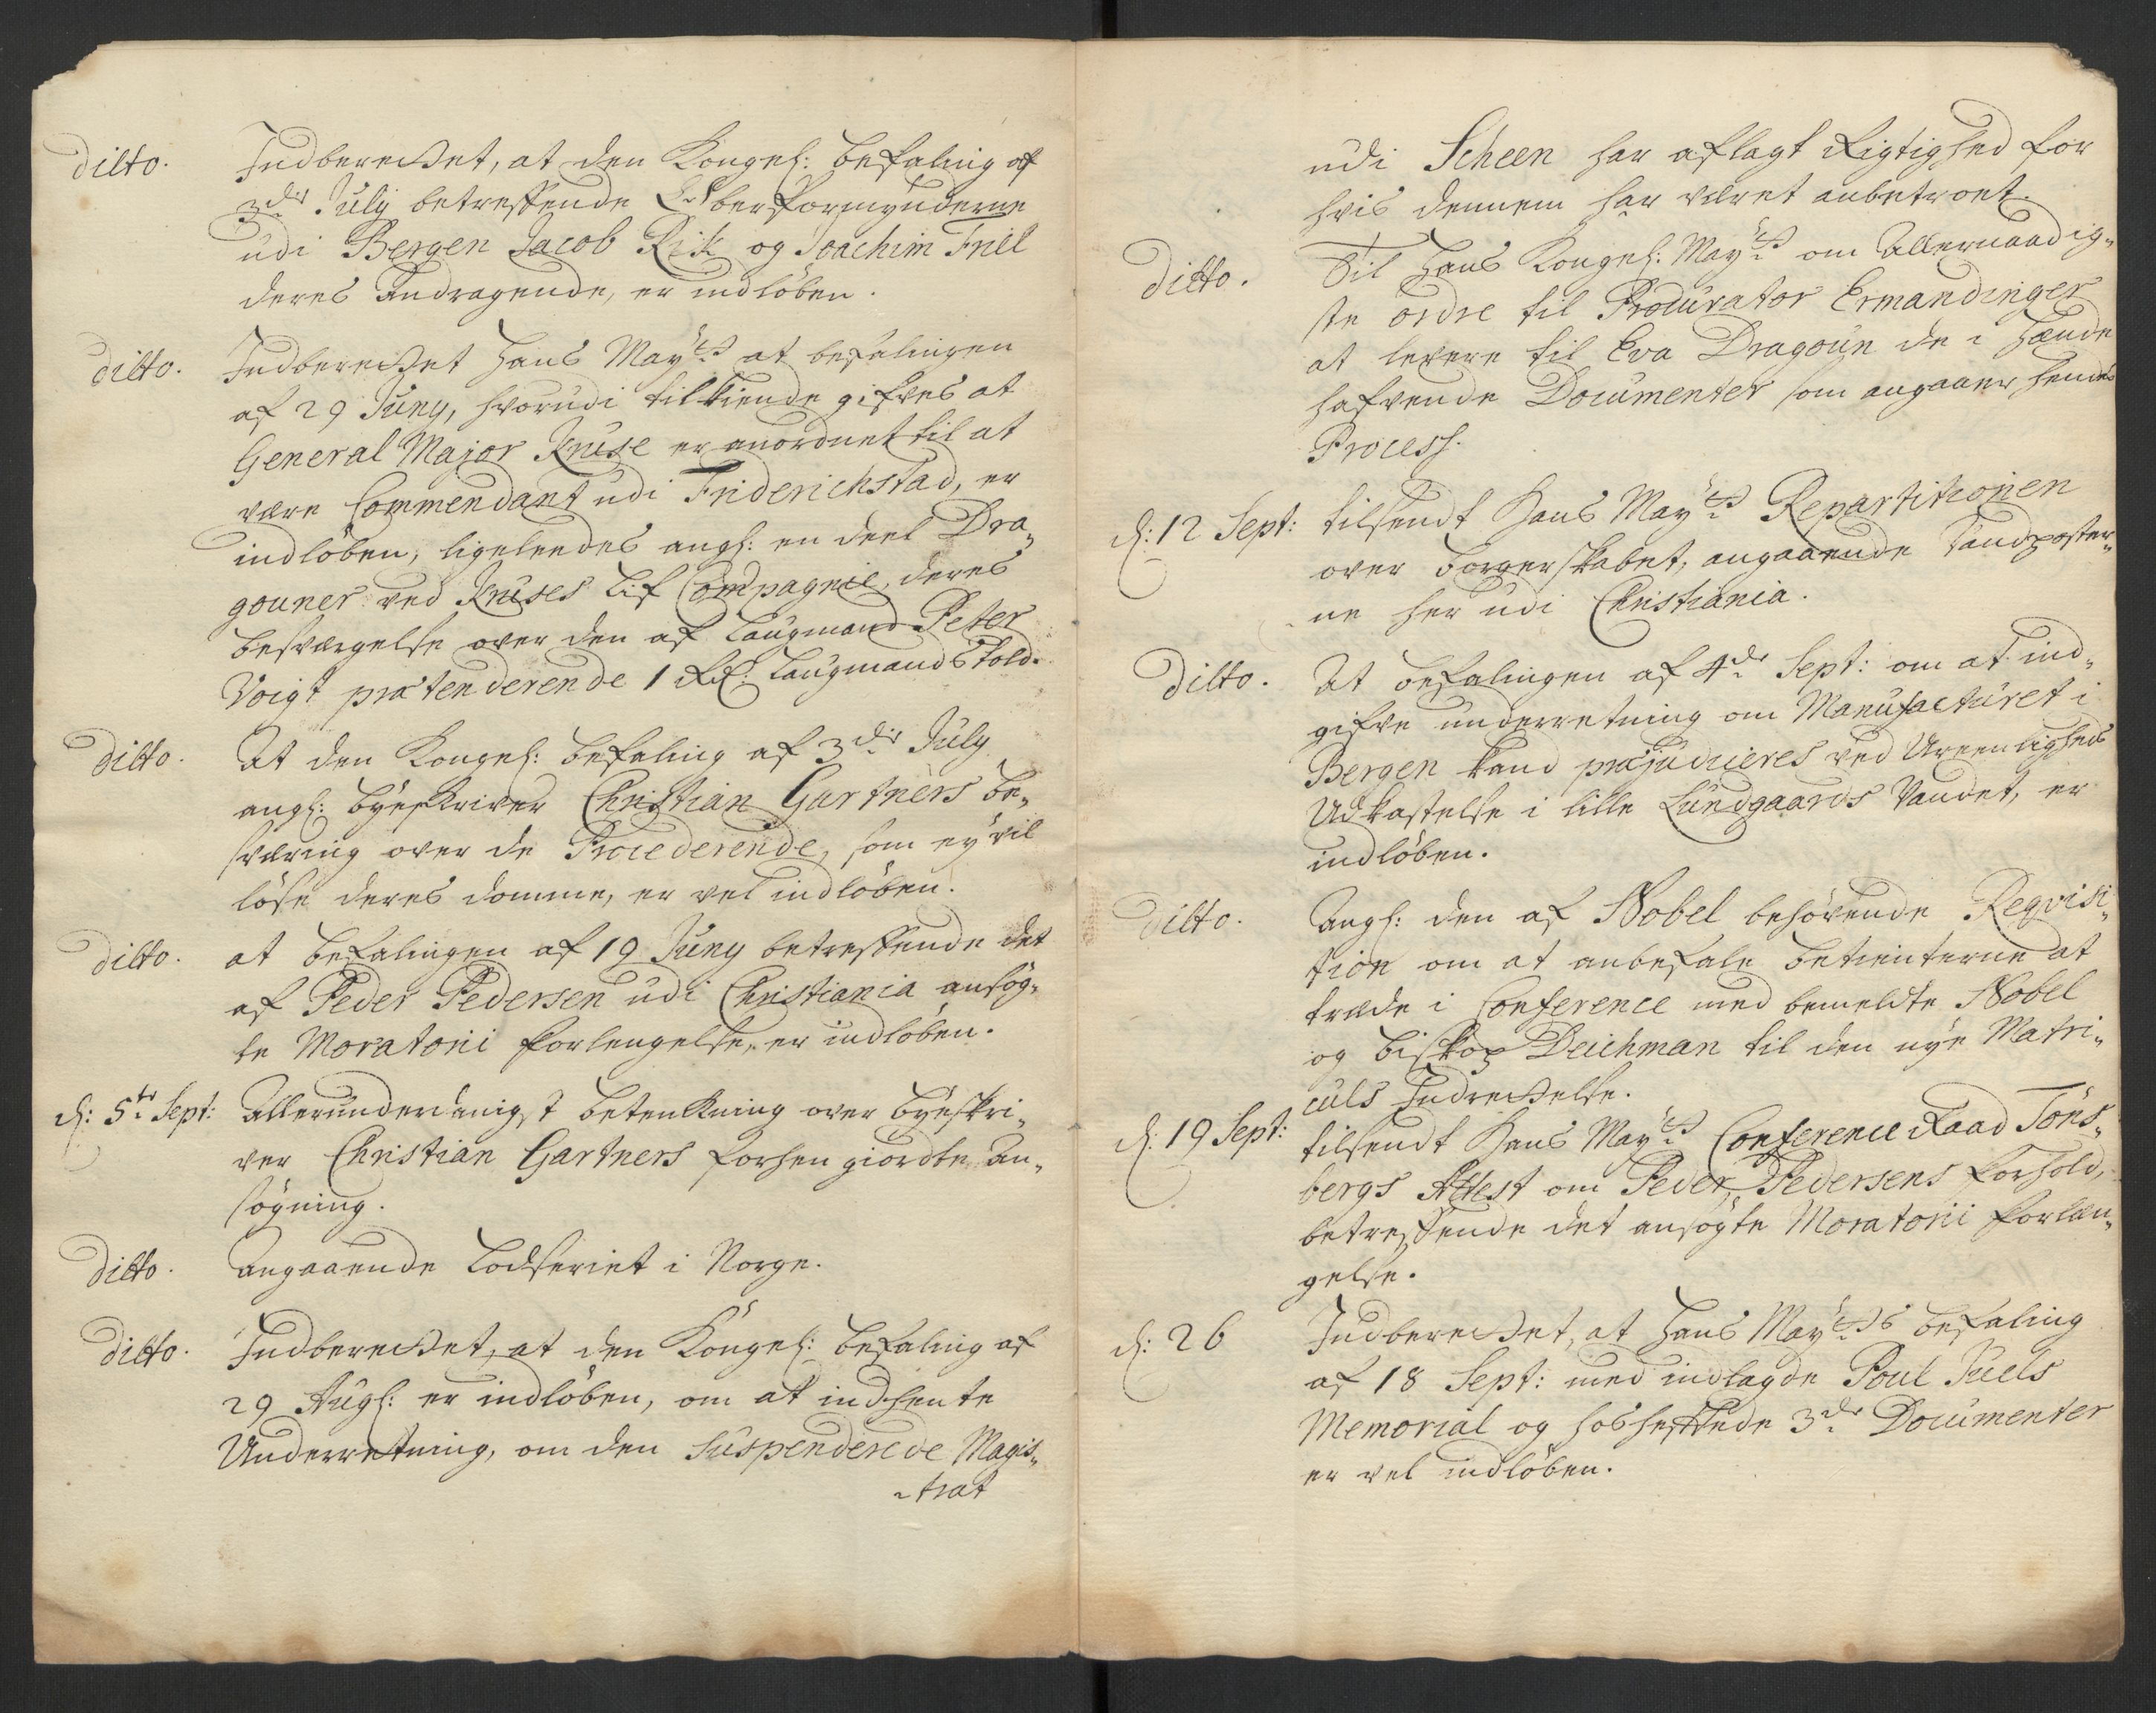 ditto. Indberettet, at den Kongel: befaling af
3de July betreffende Oberformynderne
udi Bergen Jacob Rik og Joachim Friel
deres Andragende, er indløben.
ditto. Indberettet Hans Mayts at befalingen
af 29 Juny, hvorudi tilkiende gifves at
General Major Kruse er anordnet til at
være Commendant udi Friderichstad, er
indløben, ligeleedes angl: en deel Dra„
gouner ved Kruses Lif Compagnie, deres
besværgelse over den af Laugmand Peter
Voigt prætenderende 1 Rd: Laugmands Told.
ditto. At den Kongel: befaling af 3de July
angl: byeskriver Christian Gartners be„
sværing over de Procederende, som ey vil
løse deres domme, er vel indløben.
ditto. at befalingen af 19 Juny betreffende det
af Peder Pedersen udi Christiania ansøg„
te Moratorii forlengelse, er indløben.
d: 5te Sept: Allerunderdanigst betenkning over byeskri„
ver Christian Gartners forhen giordte An„
søgning.
ditto. Angaaende Lodseriet i Norge.
ditto. Indberettet, at den Kongel: befaling af
29 Augl: er indløben, om at indhente
Underretning, om den Suspenderede Magis„
„trat
udi Scheen har aflagt Rigtighed for
hvis dennem har været anbetroet.
ditto. Til Hans Kongel: Mayts om Allernaadig„
ste ordre til Procurator Ermandinger
at levere til Eva Dragoun de i Hænde
hafvende Documenter som angaaer hendes
Process.
d: 12 Sept: tilsendt Hans Mayts Repartitionen
over borgerskabet, angaaende Vandposter„
ne her udi Christiania.
ditto. At befalingen af 4de Sept: om at ind„
gifve underretning om Manufacturet i
Bergen kand præjudiceres ved Ureenligheds
Udkastelse i lille Lundgaards Vandet, er
indløben.
ditto. Angl: den af Nobel behøvende Reqvisi„
tion om at anbefale betienterne at
træde i Conference med bemeldte Nobel
og biskop Deichman til den nye Matri„
culs Indrettelse.
d: 19 Sept: tilsendt Hans Mayts Conference Raad Tøns„
bergs Attest om Peder Pedersens forhold,
betreffende det ansøgte Moratorii forlæn„
gelse.
d: 26 Indberettet, at Hans Mayts befaling
af 18 Sept: med indlagde Poul Juels
Memorial og hoshæftede 3de Documenter
er vel indløben.